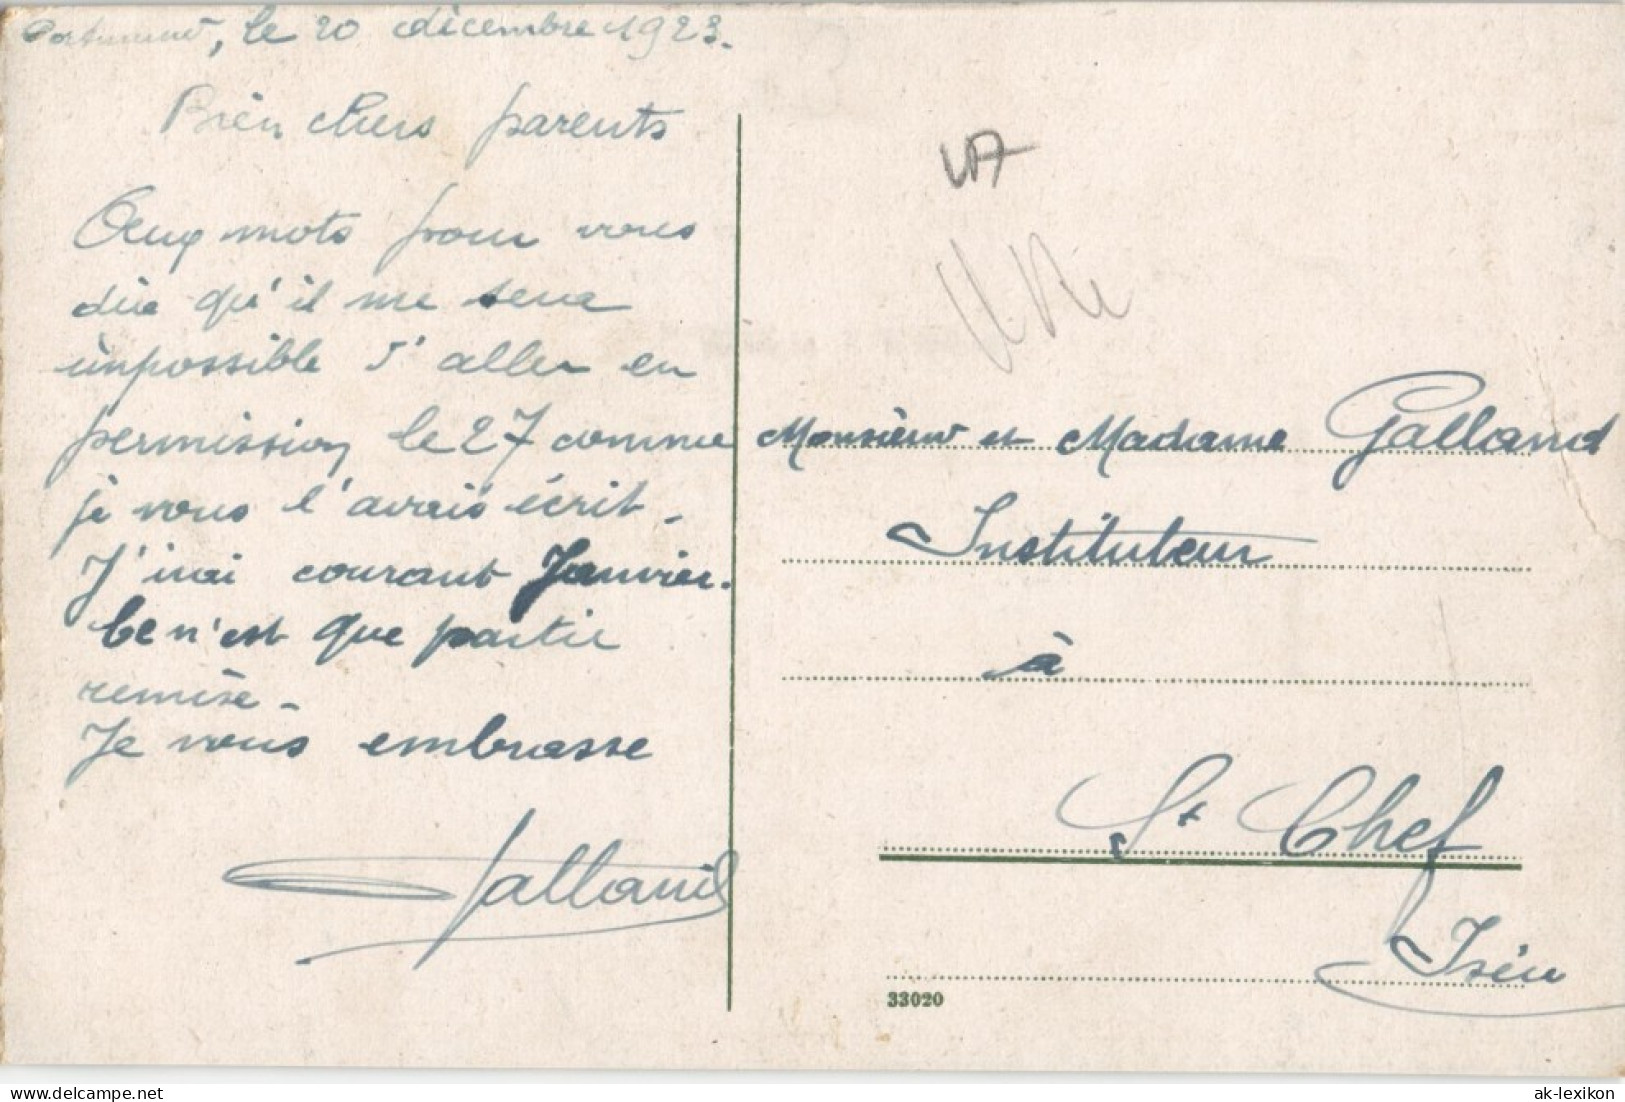 le 20 décembre 1923.
Bien chers parents
Deux mots pour vous
dire qu'il me sera
impossible d'aller en
permission le 27 comme
je vous l'avais écrit.
J'irai courant Janvier.
Ce n'est que partie
remise.
Je vous embrasse
Galland
Monsieur et Madame Galland
Instituteur
à
St Chef
Isère
33020
www.delcampe.net
ak-lexikon